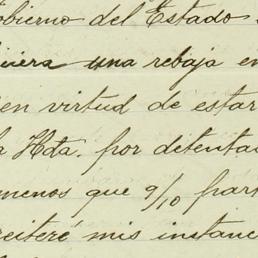 obierno del Estado
iciera una rebaja en
en virtud de estar
a Hda. por detenta
menos que 9/10 par
reiteré mis instanc